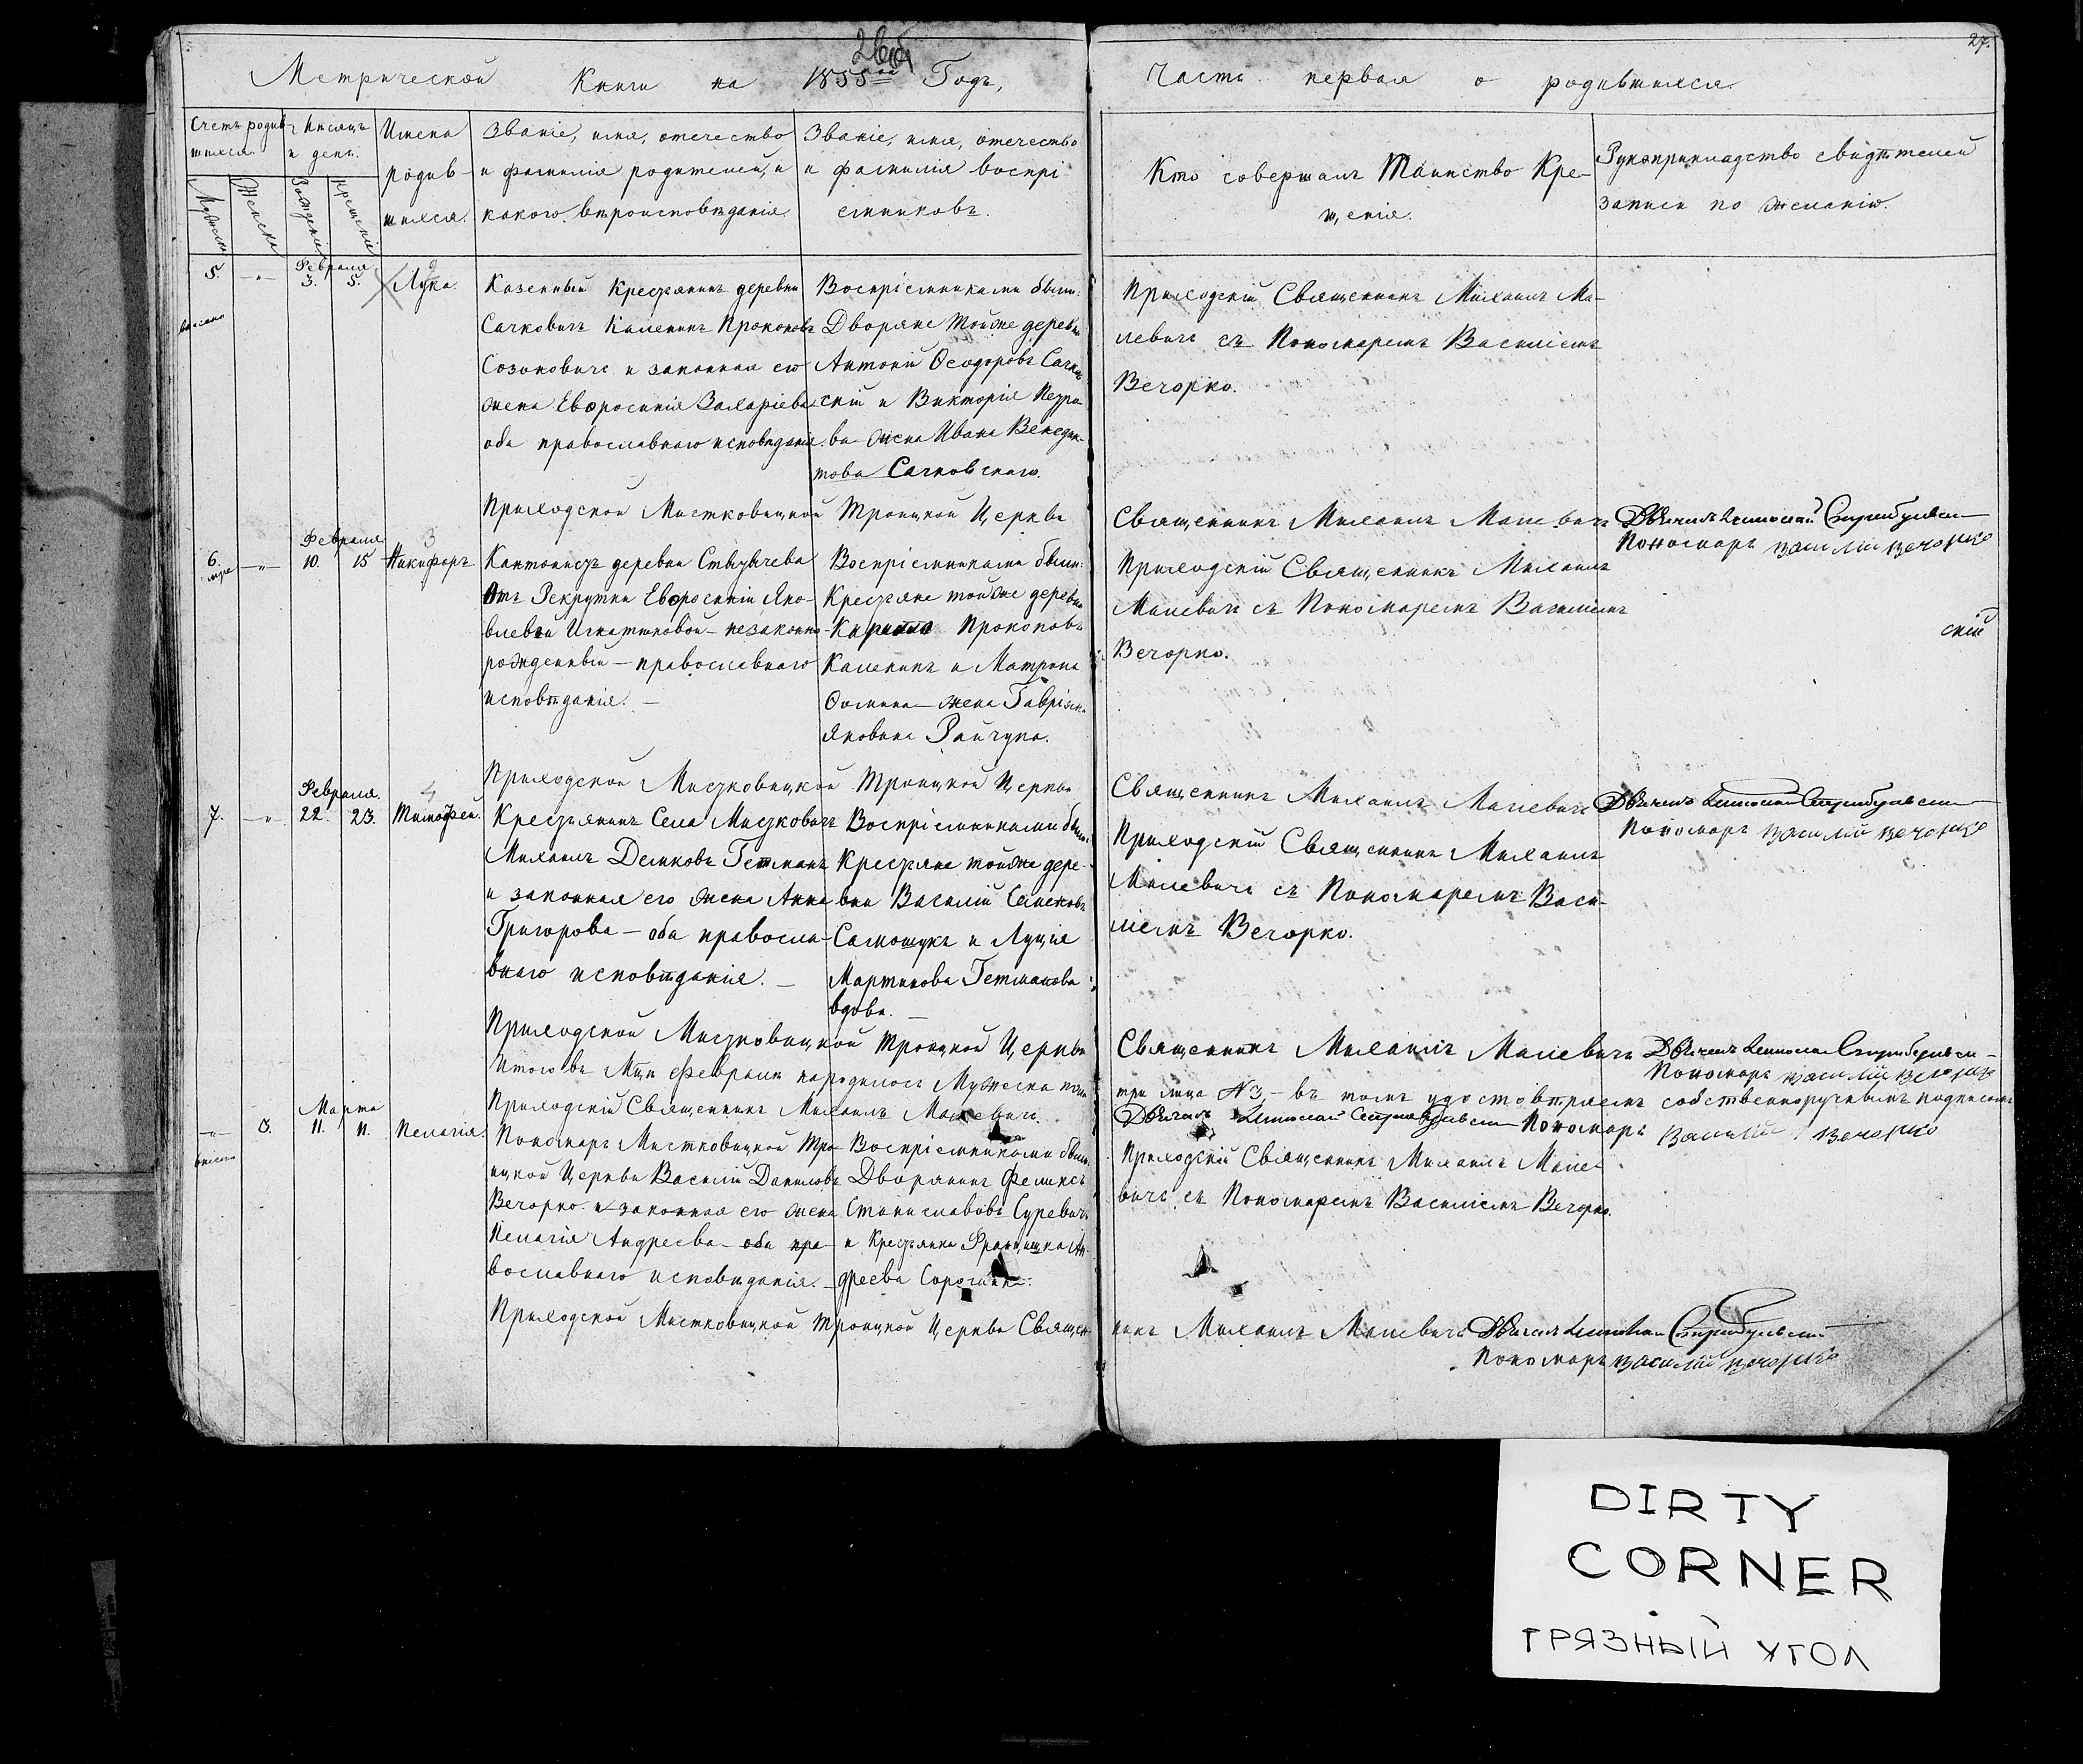 27.
Метрической Книги на 1855 Годъ,
Часть первая о родившихся.
Счетъ родив-
шихся.
Мѣсяцъ
и день.
Мужеска
Женска
Рожденія
Крещенія
Имена
родив-
шихся.
Званіе, имя, отечество
и фамилія родителей, и
какого вѣроисповѣданія.
Званіе, имя, отечество
и фамилія воспрі-
емниковъ.
Кто совершалъ Таинство Кре-
щенія.
Рукоприкладство свидѣтелей
записи по желанію.
5.
Февраля
3. 5.
2
Лука.
Казенный Крестьянинъ деревни
Сачковичъ Каленикъ Прокоповъ
Созоновичъ и законная его
жена Евфросинія Захаріева
оба православнаго исповѣданія.
Воспріемниками были:
Дворяне тойже деревни
Антоній Ѳеодоровъ Сачков-
скій и Викторія Петро-
ва жена Ивана Венедик-
това Сачковскаго.
Приходскій Священникъ Михаилъ Ма-
левичъ съ Пономаремъ Василіемъ
Вечорко.
Приходской Мистковицкой Троицкой Церкви
Священникъ Михаилъ Малевичъ
Пономарь Василій Вечорко
6.
Февраля
10. 15
3
Никифоръ
Кантонистъ деревни
Отъ Рекрутки Евфросиніи Яко-
влевой Игнатюковой - незаконно-
рожденный - православнаго
исповѣданія. -
Воспріемниками были:
Крестьяне тойже деревни
Прокоповъ
Каленикъ и Матрона
Ѳомина - жена Гавріила
Яковича Райчука.
Приходскій Священникъ Михаилъ
Малевичъ съ Пономаремъ Василіемъ
Вечорко.
скій
Приходской Мистковицкой Троицкой Церкви
Священникъ Михаилъ Малевичъ
Пономарь Василій Вечорко
7.
Февраля.
22. 23.
4
Тимофей.
Крестьянинъ Села Мистковичъ
Михаилъ Демковъ Гетманъ
и законная его жена Анна
Григорова - оба правосла-
внаго исповѣданія. -
Воспріемниками были:
Крестьяне тойже дере-
вни Василій Семеновъ
Самошукъ и Луція
Мартинова Гетманова
вдова. -
Приходскій Священникъ Михаилъ
Малевичъ съ Пономаремъ Васи-
ліемъ Вечорко.
Приходской Мистковицкой Троицкой Церкви
Священникъ Михаилъ Малевичъ
Пономарь Василій Вечорко
Итого въ Мцѣ Февралѣ народилось Мужеска пола
три лица N 3, - въ томъ удостовѣряемъ собственноручнымъ подписомъ
Приходскій Священникъ Михаилъ Малевичъ.
Пономарь Василій Вечорко
Марта
11. 11.
Пелагія.
Пономарь Мистковицкой Тро-
ицкой Церкви Василій Даниловъ
Вечорко и законная его жена
Пелагія Андреева - оба пра-
вославнаго исповѣданія. -
Воспріемниками были:
Дворянинъ Феликсъ
Станиславовъ Суревичъ
и Крестьянка Францишка Ан-
дреева
Приходскій Священникъ Михаилъ Мале-
вичъ съ Пономаремъ Василіемъ Вечорко.
Приходской Мистковицкой Троицкой Церкви Священ-
никъ Михаилъ Малевичъ
Пономарь Василій Вечорко
DIRTY
CORNER
ГРЯЗНЫЙ УГОЛ